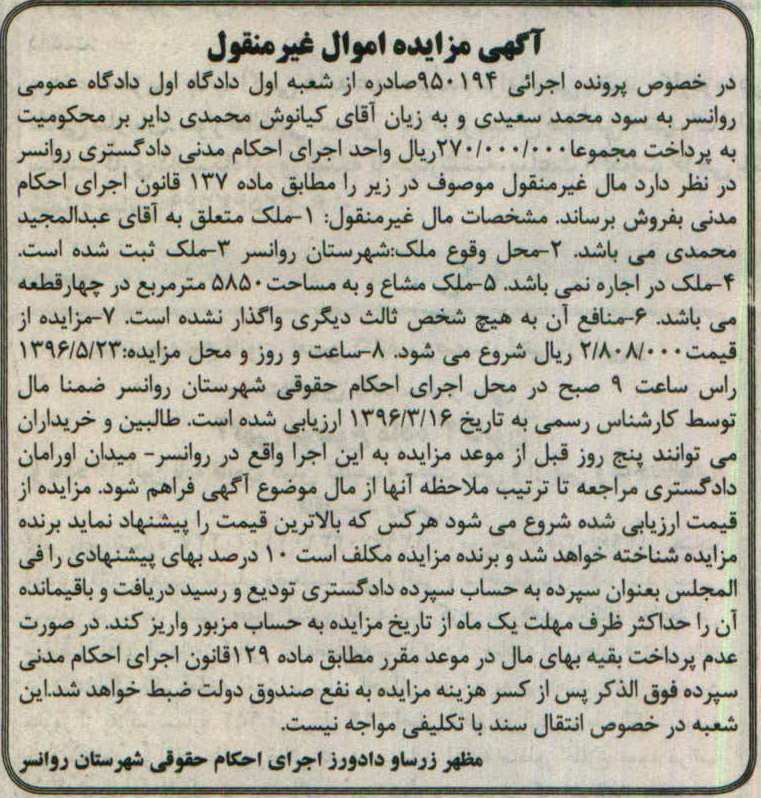 آگهی مزایده اموال غیرمنقول
در خصوص پرونده اجرائی ۹۵۰۱۹۴صادره از شعبه اول دادگاه اول دادگاه عمومی
روانسر به سود محمد سعیدی و به زیان آقای کیانوش محمدی دایر بر محکومیت
به پرداخت مجموعا۲۷۰/۰۰۰/۰۰۰ریال واحد اجرای احکام مدنی دادگستری روانسر
در نظر دارد مال غیرمنقول موصوف در زیر را مطابق ماده ۱۳۷ قانون اجرای احکام
مدنی بفروش برساند. مشخصات مال غیرمنقول: ۱-ملک متعلق به آقای عبدالمجید
محمدی می باشد. ۲-محل وقوع ملک:شهرستان روانسر ۳-ملک ثبت شده است.
۴-ملک در اجاره نمی باشد. ۵-ملک مشاع و به مساحت۵۸۵۰ مترمربع در چهارقطعه
می باشد. ۶-منافع آن به هیچ شخص ثالث دیگری واگذار نشده است. ۷-مزایده از
قیمت۲/۸۰۸/۰۰۰ ریال شروع می شود. ۸-ساعت و روز و محل مزایده:۱۳۹۶/۵/۲۳
راس ساعت ۹ صبح در محل اجرای احکام حقوقی شهرستان روانسر ضمنا مال
توسط کارشناس رسمی به تاریخ ۱۳۹۶/۳/۱۶ ارزیابی شده است. طالبین و خریداران
می توانند پنج روز قبل از موعد مزایده به این اجرا واقع در روانسر- میدان اورامان
دادگستری مراجعه تا ترتیب ملاحظه آنها از مال موضوع آگهی فراهم شود. مزایده از
قیمت ارزیابی شده شروع می شود هرکس که بالاترین قیمت را پیشنهاد نماید برنده
مزایده شناخته خواهد شد و برنده مزایده مکلف است ۱۰ درصد بهای پیشنهادی را فی
المجلس بعنوان سپرده به حساب سپرده دادگستری تودیع و رسید دریافت و باقیمانده
آن را حداکثر ظرف مهلت یک ماه از تاریخ مزایده به حساب مزبور واریز کند. در صورت
عدم پرداخت بقیه بهای مال در موعد مقرر مطابق ماده ۱۲۹قانون اجرای احکام مدنی
سپرده فوق الذکر پس از کسر هزینه مزایده به نفع صندوق دولت ضبط خواهد شد.این
شعبه در خصوص انتقال سند با تکلیفی مواجه نیست.
مظهر زرساو دادورز اجرای احکام حقوقی شهرستان روانسر